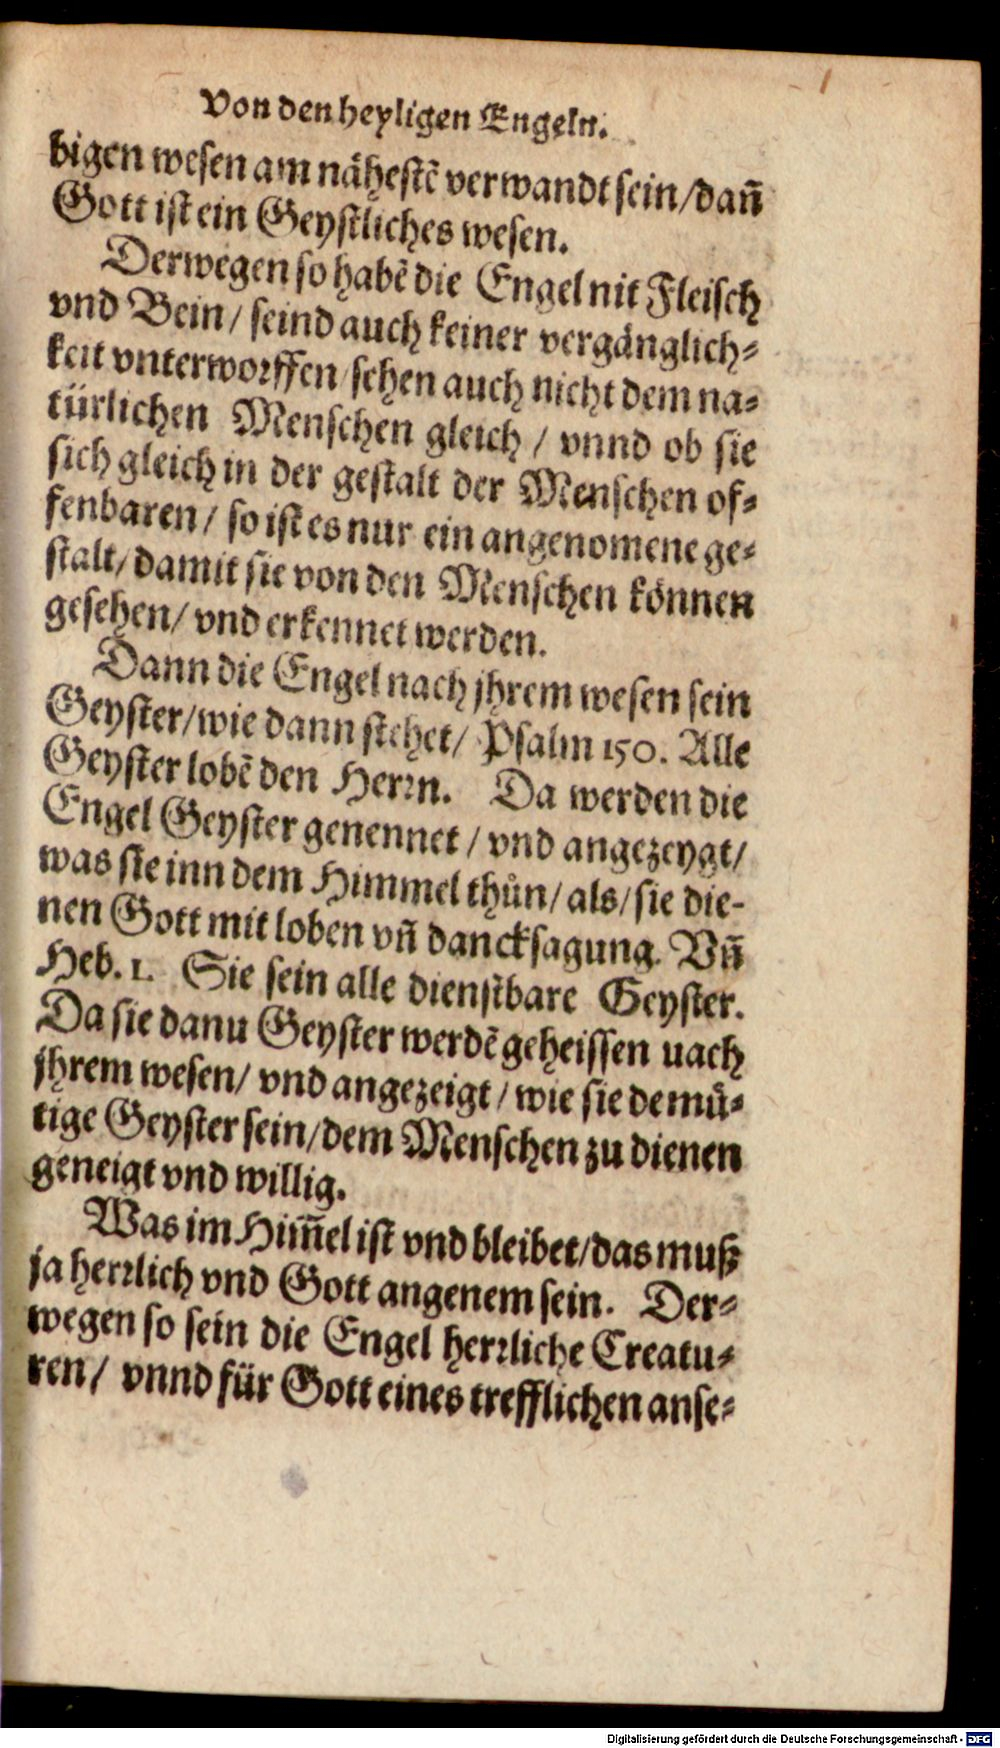 Von den heyligen Engeln.
bigen wesen am nähestẽ verwandt sein/dañ
Gott ist ein Geystliches wesen.
Derwegen so habẽ die Engel nit Fleisch
vnd Bein/ seind auch keiner vergänglich-
keit vnterworffen/sehen auch nicht dem na-
türlichen Menschen gleich / vnnd ob sie
sich gleich in der gestalt der Menschen of-
fenbaren/ so ist es nur ein angenomene ge-
stalt/damit sie von den Menschen können
gesehen/ vnd erkennet werden.
Dann die Engel nach jhrem wesen sein
Geyster/wie dann stehet/ Psalm 150. Alle
Geyster lobẽ den Herrn. Da werden die
Engel Geyster genennet / vnd angezeygt/
was sie inn dem Himmel thůn/ als/sie die-
nen Gott mit loben vñ dancksagung. Vñ
Heb. 1. Sie sein alle dienstbare Geyster.
Da sie danu Geyster werdẽ geheissen uach
jhrem wesen/ vnd angezeigt / wie sie demü-
tige Geyster sein/dem Menschen zu dienen
geneigt vnd willig.
Was im Him̃el ist vnd bleibet/das muß
ja herrlich vnd Gott angenem sein. Der-
wegen so sein die Engel herrliche Creatu-
ren/ vnnd für Gott eines trefflichen anse-
Digitalisierung gefördert durch die Deutsche Forschungsgemeinschaft - DFG